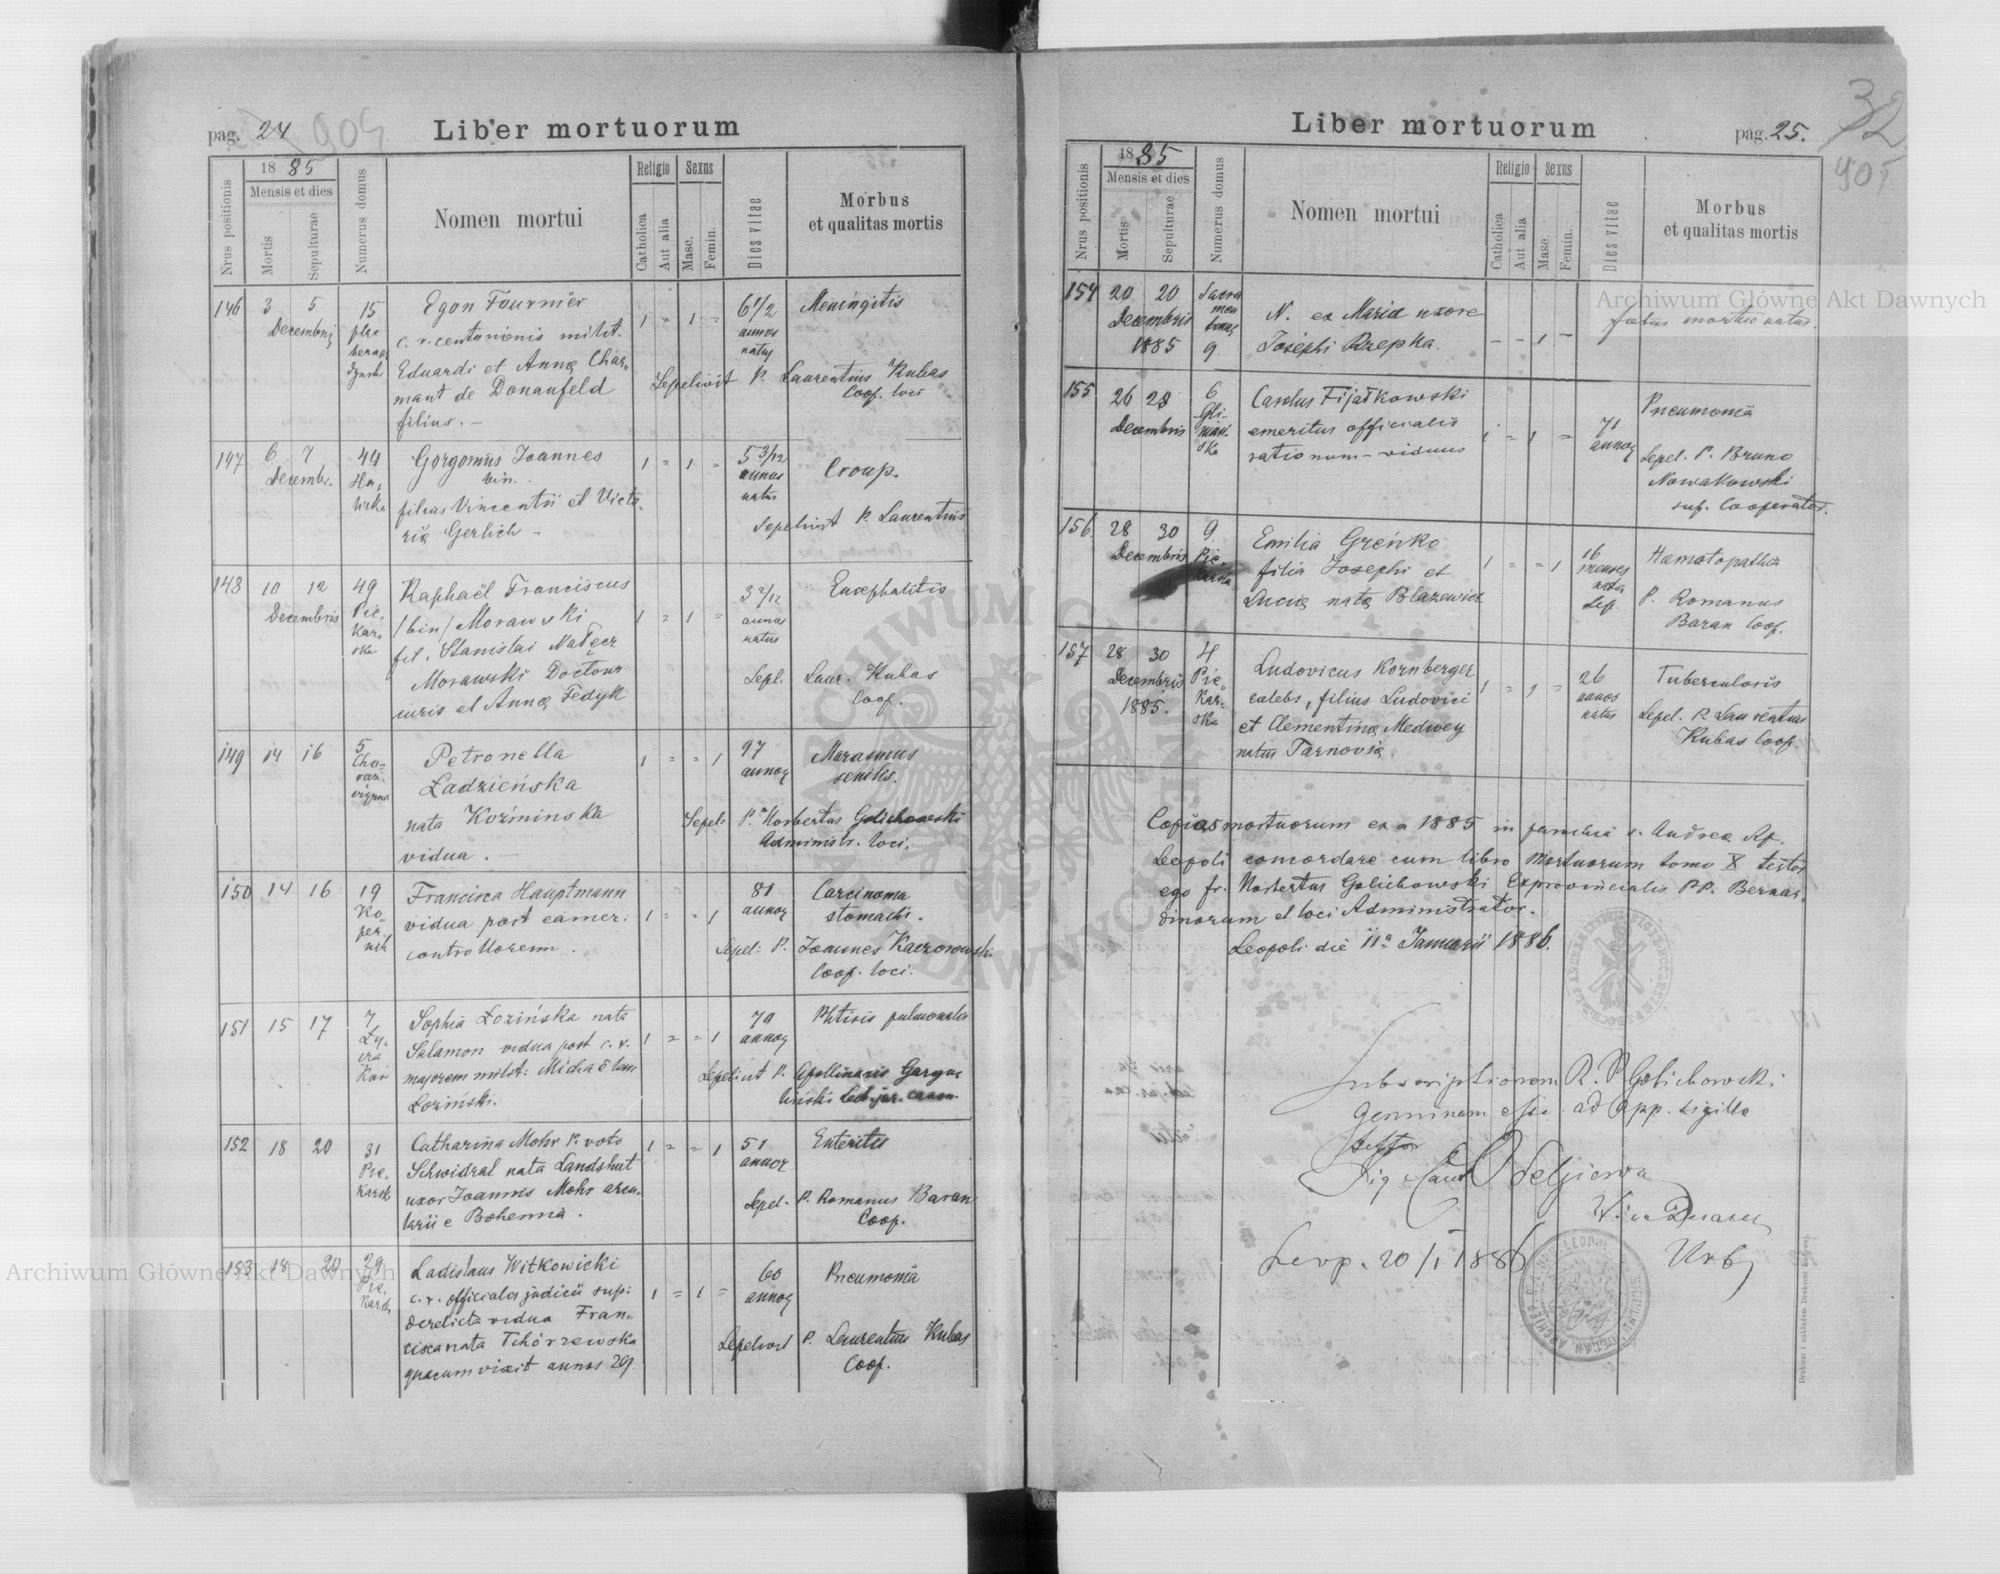 pag. 24 904 Liber mortuorum
Nrus positionis
1885
Mensis et dies
Mortis
Sepulturae
Numerus domus
Nomen mortui
Religio
Catholica
Aut alia
Sexus
Masc.
Femin.
Dies vitae
Morbus
et qualitas mortis
146 3 5 15 Egon Fournier 1 = 1 = 6 1/2 Meningitis
Decembris c. r. centurionis milit. annos
Eduardi et Annę Char- natus
mant de Donaufeld Sepelivit P. Laurentius Kubas
filius. — Coop. loci
147 6 7 44 Gorgonius Joannes 1 = 1 = 5 3/12 Croup.
Decembr. Ha- bin. annos
licka filius Vincentii et Victo- natus
rię Gerlich — Sepelivit P. Laurentius
148 10 12 49 Raphaël Franciscus 1 = 1 = 3 2/12 Encephalitis
Decembris Pie- /bin/ Morawski annos
kar- fil. Stanislai Nałęcz natus
ska Morawski Doctoris Sepl. Laur. Kubas
iuris et Annę Fedyk Coop.
149 14 16 5 Petronella 1 = = 1 97 Marasmus
Ładzieńska annos senilis.
nata Koźmińska Sepel: P. Norbertus Golichowski
vidua. — Administr. loci.
150 14 16 19 Francisca Hauptmann 1 = = 1 81 Carcinoma
Ko- vidua post camer. annos stomachi.
per- controllorem. Sepel: P. Joannes Kaczorowski
nik Coop. loci.
151 15 17 7 Sophia Łozińska nata 1 = = 1 79 Phtisis pulmonalis
Ły- Salamon vidua post c. r. annos
cza majorem milit: Michaëlem Sepelivit P. Apollinaris Gargu-
kow Łoziński. liński Lect. jur. canon.
152 18 20 31 Catharina Mohr P. voto 1 = = 1 51 Enteritis
Pie- Schwidral nata Landshut annos
karsk uxor Joannis Mohr Sepel. P. Romanus Baran
e Bohemia. Coop.
153 18 20 29 Ladislaus Witkowicki 1 = 1 = 60 Pneumonia
Pie- c. r. officialis judicii sup: annos
karsk derelicta vidua Fran-
cisca nata Tchórzewska Sepelivit P. Laurentius Kubas
quacum vixit annos 29 Coop.
Liber mortuorum pag. 25. 32
905
Nrus positionis
1885
Mensis et dies
Mortis
Sepulturae
Numerus domus
Nomen mortui
Religio
Catholica
Aut alia
Sexus
Masc.
Femin.
Dies vitae
Morbus
et qualitas mortis
154 20 20 Sacra N. ex Maria uxore - - 1 - fœtus mortuo natus.
Decembris men
1885 9. Josephi Rzepka.
155 26 28 6 Carolus Fijałkowski 1 = 1 = 71 Pneumonia
Decembris Gli- emeritus officialis annos
niań- rationum - viduus Sepel. P. Bruno
ska Nowakowski
sup. Cooperator.
156 28 30 9. Emilia Greńko 1 = = 1 16 Hæmatopathia
Decembris Pie- filia Josephi et menses
karska Lucię natę Błazewicz nata P. Romanus
Sep. Baran Coop.
157 28 30 4 Ludovicus Kornberger 1 = 1 = 26 Tuberculosis
Decembris Pie- cælebs, filius Ludovici annos
1885. kar- et Clementinę Medwey natus Sepel. P. Laurentius
ska natus Tarnovię. Kubas Coop.
Copias mortuorum ex a 1885 in parochia s. Andreę Ap.
Leopoli concordare cum libro Mortuorum tomo X testor
ego fr. Norbertus Golichowski Exprovincialis PP. Bernar-
dinorum et loci Administrator.
Leopoli die 11a Januarii 1886.
Subscriptionem R. P. Golichowski
genuinam esse ad app. sigilla
testor
Leop. 20/I 1886 Urb
Drukiem i nakładem Drukarni Ludowej.
Archiwum Główne Akt Dawnych
Archiwum Główne Akt Dawnych
ARCHIWUM GŁÓWNE AKT DAWNYCH